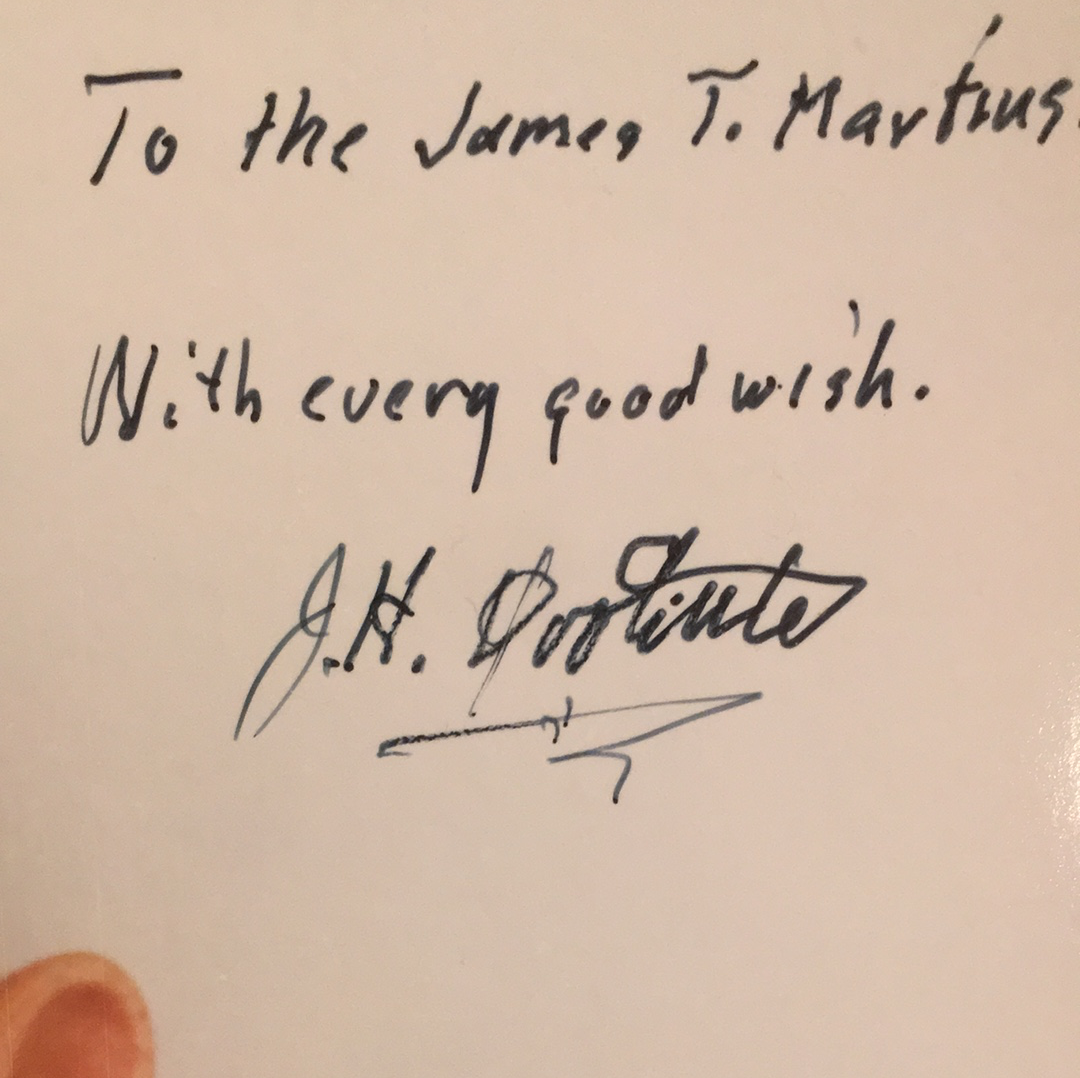 To the James T. Martins.
With every good wish.
J.H. Doolittle